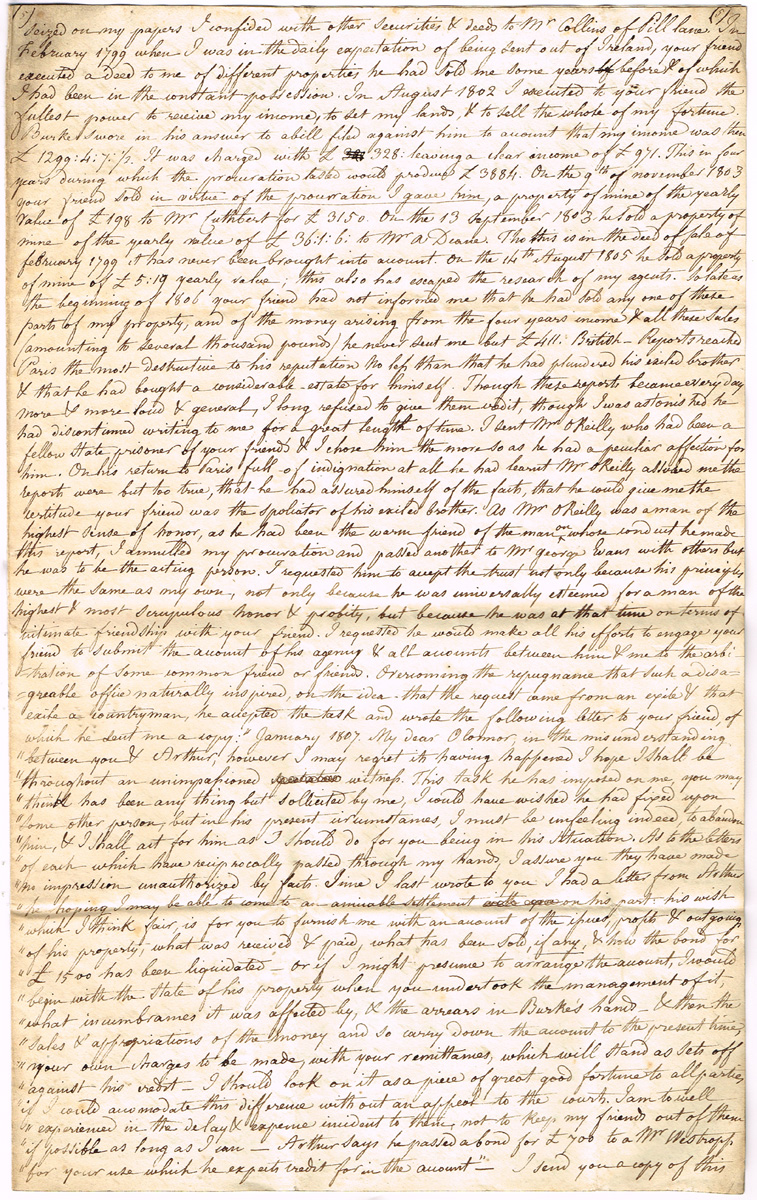 seized on my papers I confided with other securities & deeds to Mr Collins of Pill lane. In
February 1799 when I was in the daily expectation of being sent out of Ireland, your friend
executed a deed to me of different properties he had sold me some years before & of which
I had been in the constant possession. In August 1802 I executed to your friend the
fullest power to receive my income, to set my lands, & to sell the whole of my fortune.
Burke swore in his answer to a bill filed against him to account that my income was then
£ 1299:4:7:½. It was charged with £ 328: leaving a clear income of £ 971. This in four
years during which the procuration lasted would produce £ 3884. On the 9th of november 1803
your friend sold in virtue of the procuration I gave him, a property of mine of the yearly
value of £ 198 to Mr Cuthbert for £ 3150. On the 13 September 1803 he sold a property of
mine of the yearly value of £ 36:1:6: to Mr A Deane. Tho this is in the deed of sale of
february 1799 it has never been brought into account. On the 14th August 1805 he sold a property
of mine of £ 5:19 yearly value; this also has escaped the research of my agents. So late as
the beginning of 1806 your friend had not informed me that he had sold any one of these
parts of my property, and of the money arising from the four years income & all these sales
amounting to several thousand pounds, he never sent me but £ 411: British – Reports reached
Paris the most destructive to his reputation No less than that he had plundered his exiled brother
& that he had bought a considerable estate for himself. Though these reports became every day
more & more loud & general, I long refused to give them credit, though I was astonished he
had discontinued writing to me for a great length of time. I sent Mr OReilly who had been a
fellow state prisoner of your friends & I chose him the more so as he had a peculiar affection for
him. On his return to Paris full of indignation at all he had learnt Mr OReilly assured me the
reports were but too true, that he had assured himself of the facts, that he could give me the
certitude your friend was the spoliator of his exiled brother. As Mr OReilly was a man of the
highest sense of honor, as he had been the warm friend of the man on whose conduct he made
this report, I annulled my procuration and passed another to Mr george waus with others but
he was to be the acting person. I requested him to accept the trust not only because his principles
were the same as my own, not only because he was universally esteemed for a man of the
highest & most scrupulous honor & probity, but because he was at that time on terms of
intimate friendship with your friend. I requested he would make all his efforts to engage your
friend to submit the account of his agency & all accounts between him & me to the arbi-
-tration of some common friend or friends. Overcoming the repugnance that such a disa-
-greable office naturally inspired, on the idea that the request came from an exile & that
exile a countryman, he accepted the task and wrote the following letter to your friend, of
which he sent me a copy. "January 1807. My dear OConnor, in the misunderstanding
"between you & Arthur, however I may regret its having happened I hope I shall be
"throughout an unimpassioned witness. This task he has imposed on me, you may
"think has been any thing but sollicited by me, I could have wished he had fixed upon
"some other person, but in his present circumstances, I must be unfeeling indeed to abandon
"him, & I shall act for him as I should do for you being in his situation. As to the letters
"of each which have reciprocally passed through my hands, I assure you they have made
"no impression unauthorized by facts. Since I last wrote to you I had a letter from Arthur
"he hoping I may be able to come to an amicable settlement on his part: his wish
"which I think fair, is for you to furnish me with an account of the issues, profits & outgoings
"of his property, what was received & paid, what has been sold, if any, & how the bond for
"£ 1500 has been liquidated – or if I might presume to arrange the account, I would
"begin with the state of his property when you undertook the management of it,
"what incumbrances it was affected by, & the arrears in Burke's hand – & then the
"sales & appropriations of the money and so carry down the account to the present time,
"your own charges to be made, with your remittances, which will stand as sets off
"against his credit – I should look on it as a piece of great good fortune to all parties
"if I could accomodate this difference without an appeal to the courts. I am to well
"experienced in the delay & expence incident to them, not to keep my friends out of them
"if possible as long as I can – Arthur says he passed a bond for £ 700 to a Mr Westropp
"for your use which he expects credit for in the account" – I send you a copy of this